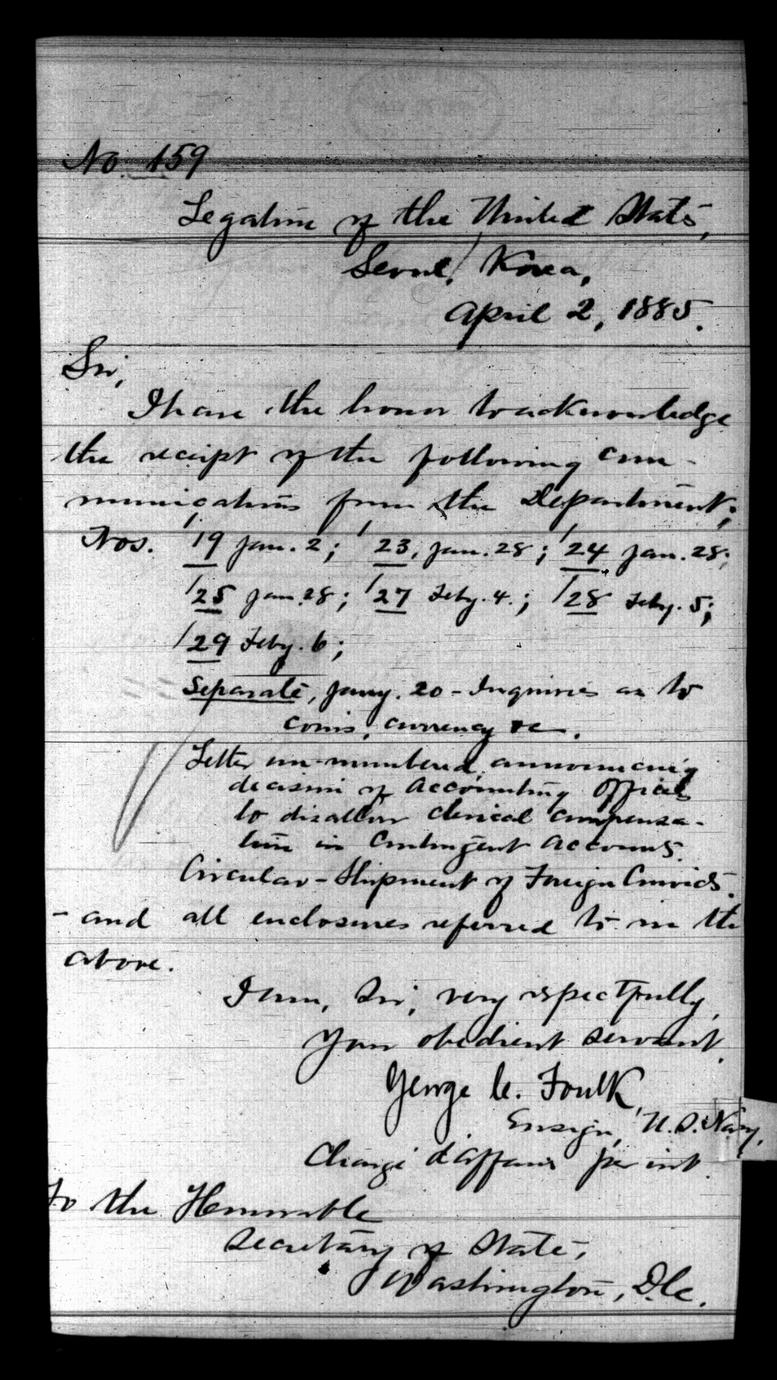 No. 159
Legation of the United States,
Seoul, Korea,
April 2, 1885.
Sir,
I have the honor to acknowledge
the receipt of the following com-
munications from the Department;
Nos. 119 Jan. 2; 123, Jan. 28; 124 Jan. 28;
125 Jan. 28; 127 Feby. 4.; 128 Feby. 5;
129 Feby. 6;
Separate, Jany. 20 - Inquiries as to
coins, currency &c.
Letter un-numbered, announcing
decision of Accounting Officers
to disallow clerical compensa-
tion in Contingent Accounts.
Circular - Shipment of Foreign Convicts.
- and all enclosures referred to in the
above.
I am, Sir, very respectfully,
Your obedient servant,
George C. Foulk,
Ensign, U.S. Navy,
Chargé d'affaires per int
To the Honorable
Secretary of State,
Washington, D.C.